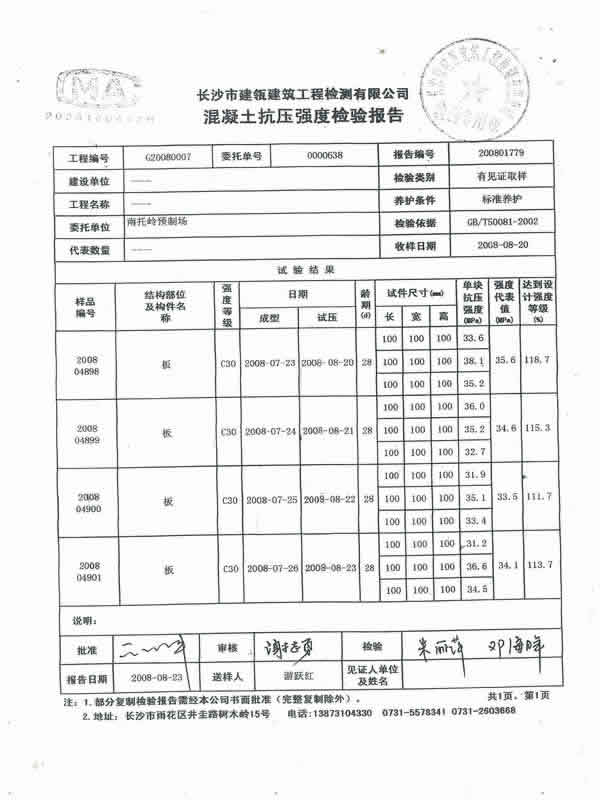 MA
长沙市建瓴建筑工程检测有限公司
混凝土抗压强度检验报告
工程编号 G20080007 委托单号 0000638 报告编号 200801779
建设单位 —— 检验类别 有见证取样
工程名称 —— 养护条件 标准养护
委托单位 南托岭预制场 检验依据 GB/T50081-2002
代表数量 —— 收样日期 2008-08-20
试验结果
样品编号 结构部位及构件名称 强度等级 日期 龄期(d) 试件尺寸(mm) 单块抗压强度(MPa) 强度代表值(MPa) 达到设计强度等级(%)
成型 试压 长 宽 高
100 100 100 33.6
2008 04898 板 C30 2008-07-23 2008-08-20 28 100 100 100 38.1 35.6 118.7
100 100 100 35.2
100 100 100 36.0
2008 04899 板 C30 2008-07-24 2008-08-21 28 100 100 100 35.2 34.6 115.3
100 100 100 32.7
100 100 100 31.9
2008 04900 板 C30 2008-07-25 2008-08-22 28 100 100 100 35.1 33.5 111.7
100 100 100 33.4
100 100 100 31.2
2008 04901 板 C30 2008-07-26 2008-08-23 28 100 100 100 36.6 34.1 113.7
100 100 100 34.5
说明:
批准 审核 检验
报告日期 2008-08-23 送样人 游跃红 见证人单位及姓名
注: 1.部分复制检验报告需经本公司书面批准(完整复制除外)。 共1页, 第1页
2.地址: 长沙市雨花区井圭路树木岭15号 电话:13873104330 0731-5578341 0731-2603668